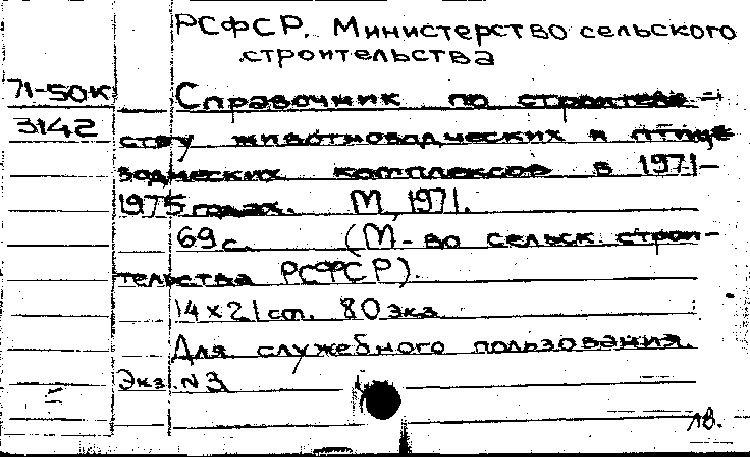 РСФСР. Министерство сельского
строительства
71-50К
3142
Справочник по строитель-
ству животноводческих и птице
водческих комплексов в 1971-
1975 годах. М, 1971.
69 с. (М-во сельск. строи-
тельства РСФСР).
14х21 см. 80 экз
Для служебного пользования.
Экз. N 3